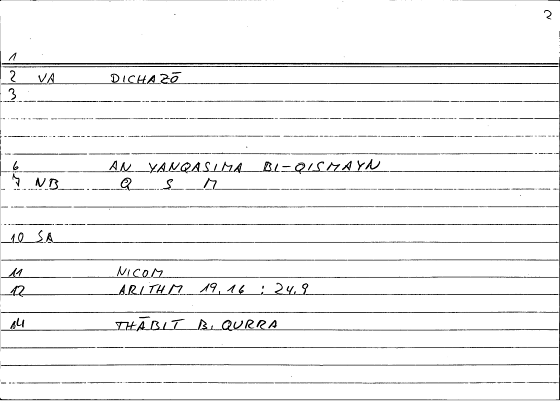 2
1
2 VA DICHAZŌ
3
6 AN YANQASIMA BI-QISMAYN
7 NB Q S M
10 SA
11 NICOM
12 ARITHM 19.16 : 24.9
14 THĀBIT B. QURRA